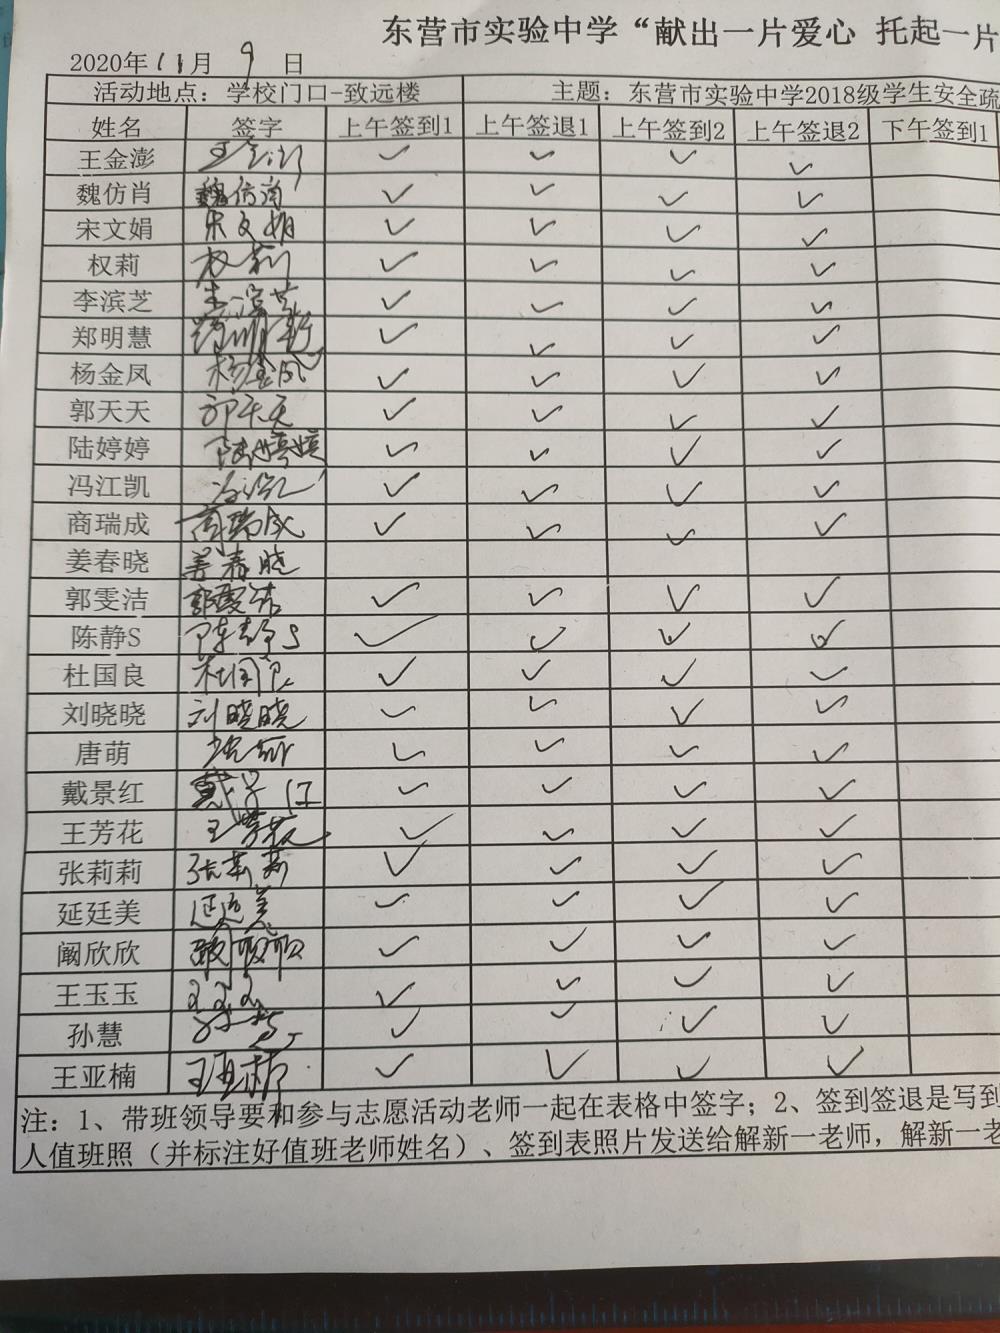 东营市实验中学“献出一片爱心 托起一片
2020年11月9日
活动地点：学校门口-致远楼 主题：东营市实验中学2018级学生安全疏
姓名 签字 上午签到1 上午签退1 上午签到2 上午签退2 下午签到1
王金澎 王金澎 ✓ ✓ ✓ ✓
魏仿肖 魏仿肖 ✓ ✓ ✓ ✓
宋文娟 宋文娟 ✓ ✓ ✓ ✓
权莉 权莉 ✓ ✓ ✓ ✓
李滨芝 李滨芝 ✓ ✓ ✓ ✓
郑明慧 郑明慧 ✓ ✓ ✓ ✓
杨金凤 杨金凤 ✓ ✓ ✓ ✓
郭天天 郭天天 ✓ ✓ ✓ ✓
陆婷婷 陆婷婷 ✓ ✓ ✓ ✓
冯江凯 冯江凯 ✓ ✓ ✓ ✓
商瑞成 商瑞成 ✓ ✓ ✓ ✓
姜春晓 姜春晓
郭雯洁 郭雯洁 ✓ ✓ ✓ ✓
陈静S 陈静S ✓ ✓ ✓ ✓
杜国良 杜国良 ✓ ✓ ✓ ✓
刘晓晓 刘晓晓 ✓ ✓ ✓ ✓
唐萌 唐萌 ✓ ✓ ✓ ✓
戴景红 戴景红 ✓ ✓ ✓ ✓
王芳花 王芳花 ✓ ✓ ✓ ✓
张莉莉 张莉莉 ✓ ✓ ✓ ✓
延廷美 延廷美 ✓ ✓ ✓ ✓
阚欣欣 阚欣欣 ✓ ✓ ✓ ✓
王玉玉 王玉玉 ✓ ✓ ✓ ✓
孙慧 孙慧 ✓ ✓ ✓ ✓
王亚楠 王亚楠 ✓ ✓ ✓ ✓
注：1、带班领导要和参与志愿活动老师一起在表格中签字；2、签到签退是写到
人值班照（并标注好值班老师姓名）、签到表照片发送给解新一老师，解新一老